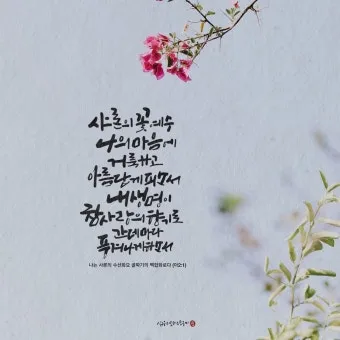 샤론의 꽃 예수
나의 마음에
거룩하고
아름답게 피소서
내 생명이
참 사랑의 향기로
간데마다
풍겨나게 하소서
나는 사론의 수선화요 골짜기의 백합화로다 (아2:1)